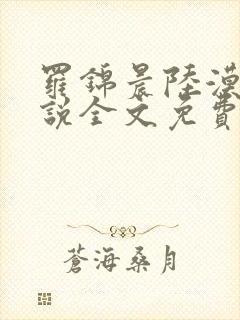 羅錦晨陸漠
說全文免費
蒼海桑月